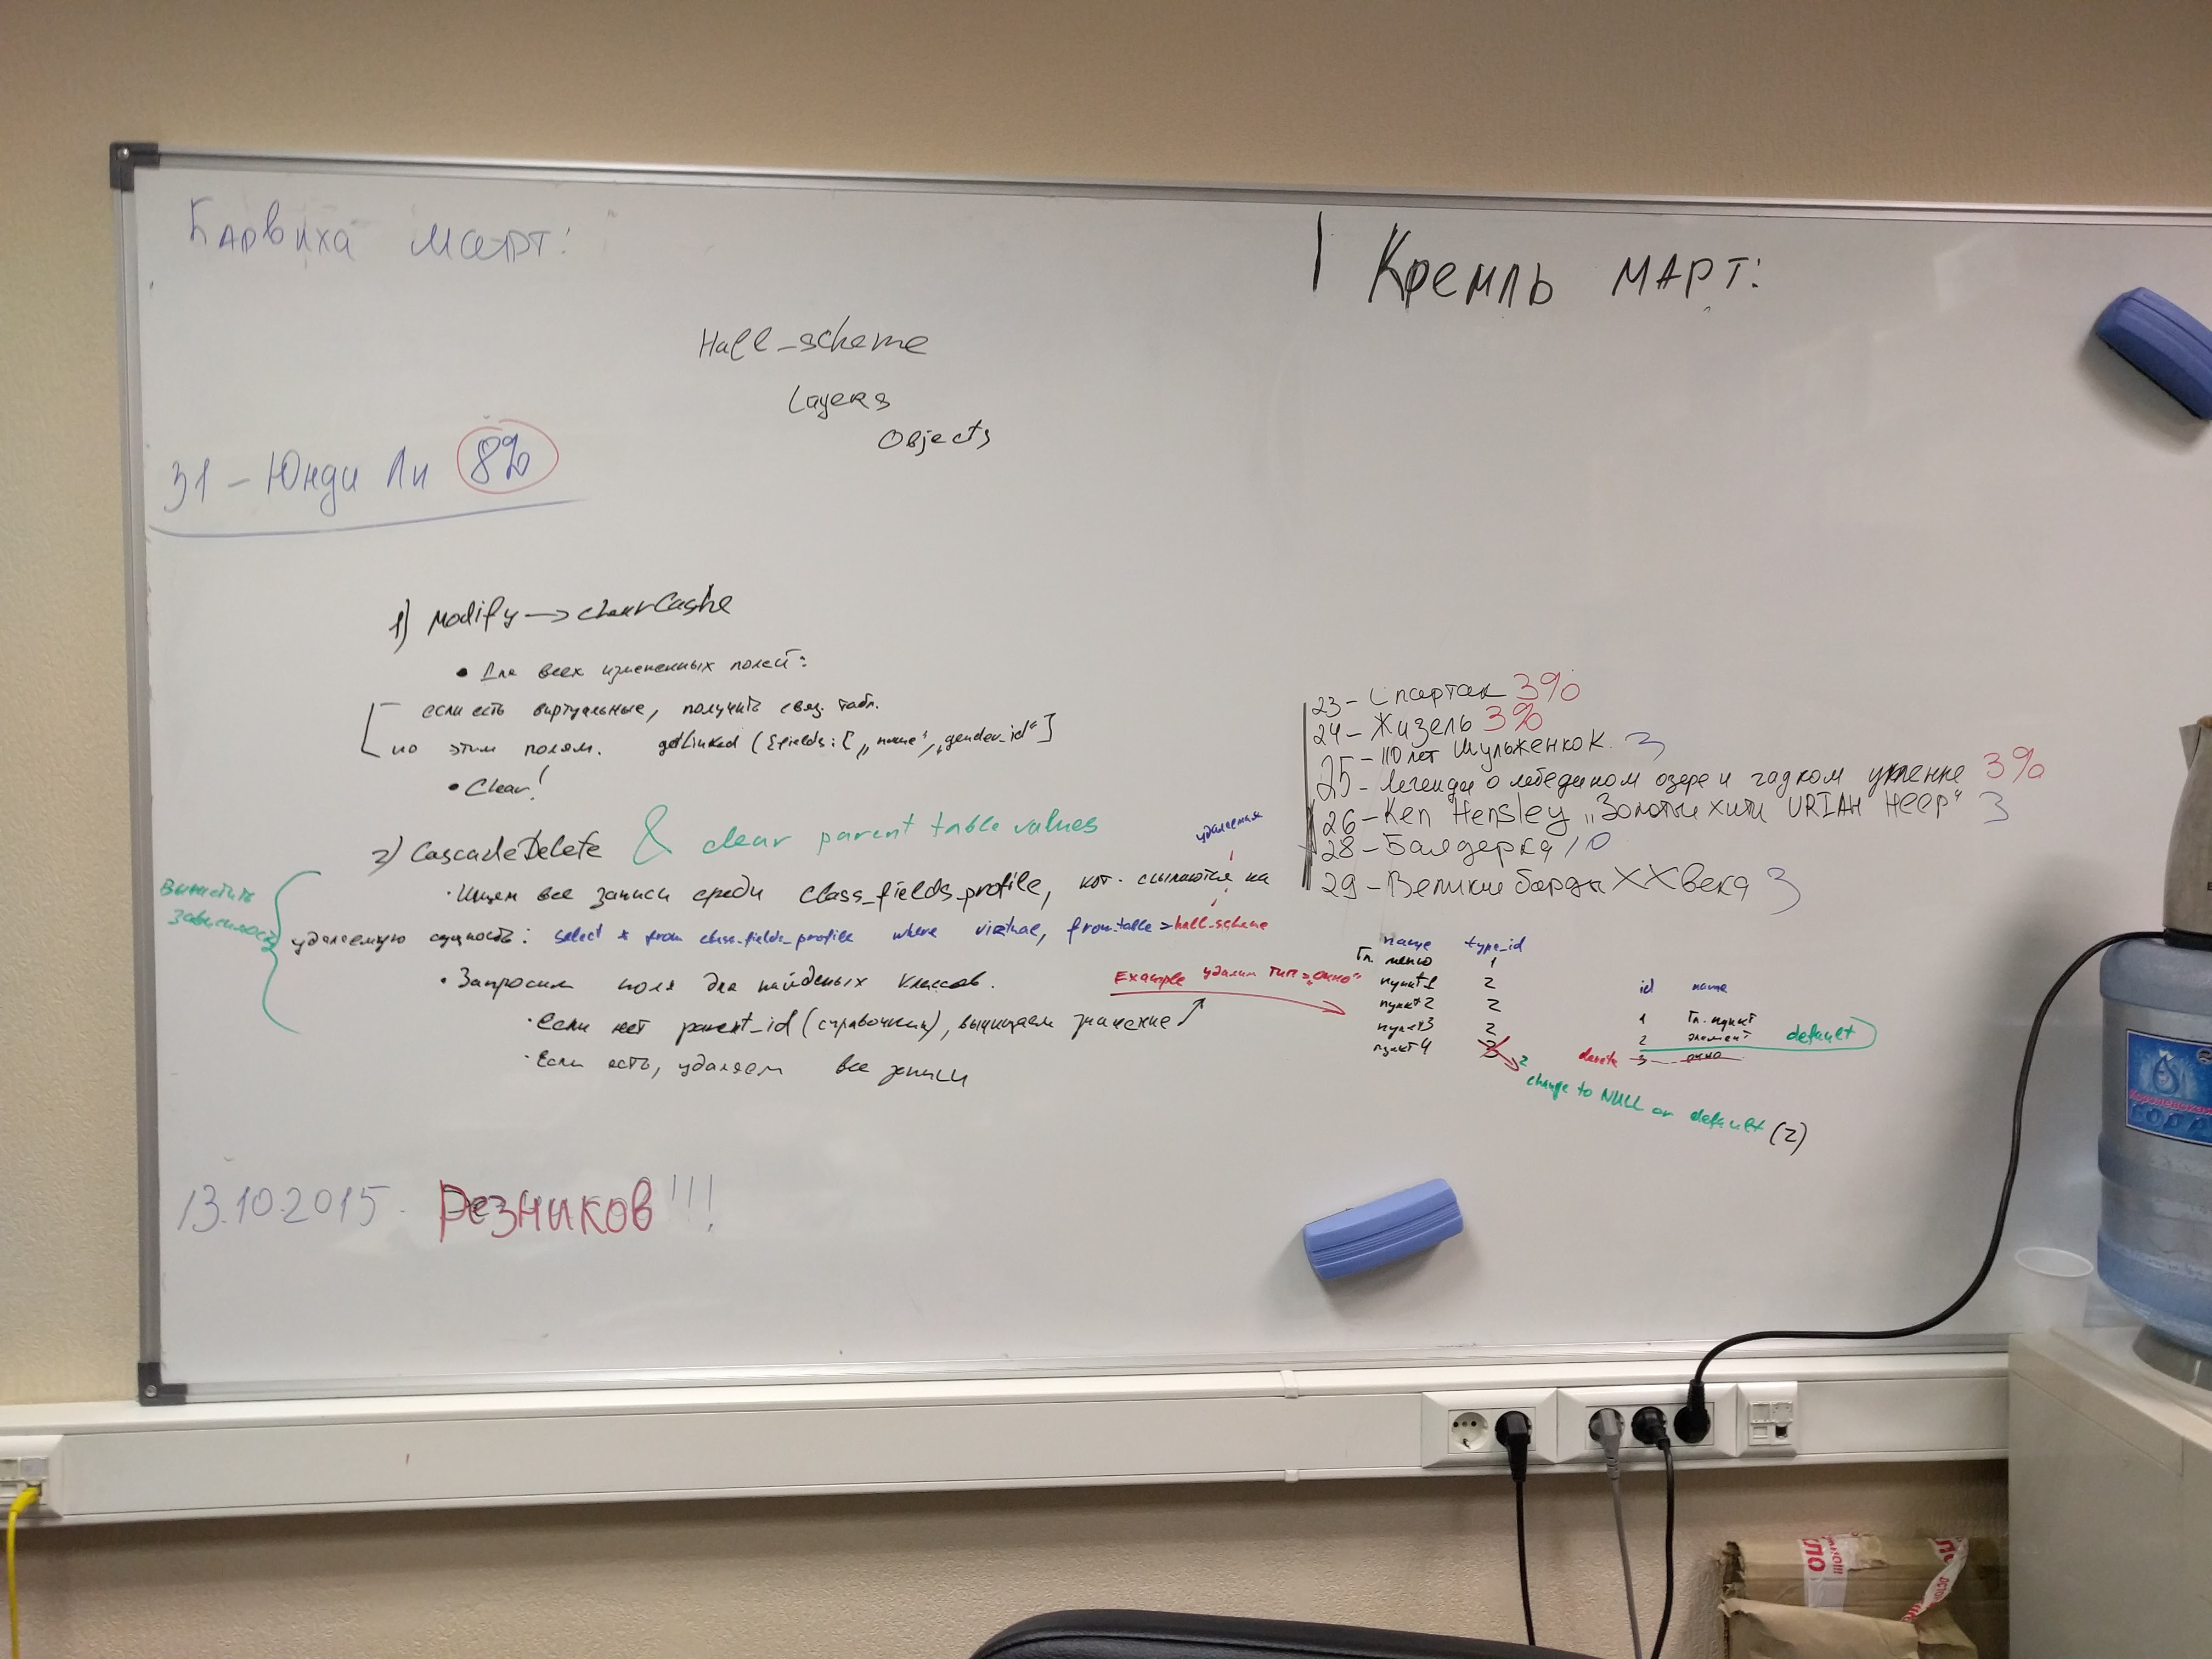 Барвиха март:
Hall_scheme
Layers
Objects
31 – Юнди Ли 8%
1) Modify → clearCashe
• Для всех измененных полей:
если есть виртуальные, получить связ. табл.
по этим полям. getLinked ({fields: [„name“, „gender_id“]
• Clear!
2) CascadeDelete & clear parent table values
удаляемая
• Ищем все записи среди class_fields_profile, кот. ссылаются на
удаляемую сущность: select * from class_fields_profile where virtual, from_table = hall_scheme
• Запросим поля для найденых классов.
• Если нет parent_id (справочник), вычищаем значение
• Если есть, удаляем все записи
13.10.2015. Резников!!!
Кремль март:
23 – Спартак 3%
24 – Жизель 3%
25 – 110 лет Шульженко К. 3
25 – Легенда о лебедином озере и гадком утенке 3%
26 – Ken Hensley „Золотые хиты URIAH HEEP“ 3
28 – Баядерка 10
29 – Великие барды XX века 3
Example удалим тип = „окно“
name type_id
Гл. меню 1
пункт 1 2
пункт 2 2
пункт 3 2
пункт 4 3 2
change to NULL or default (2)
id name
1 Гл. пункт
2 элемент default
delete 3 окно
Королевская
ВОДА